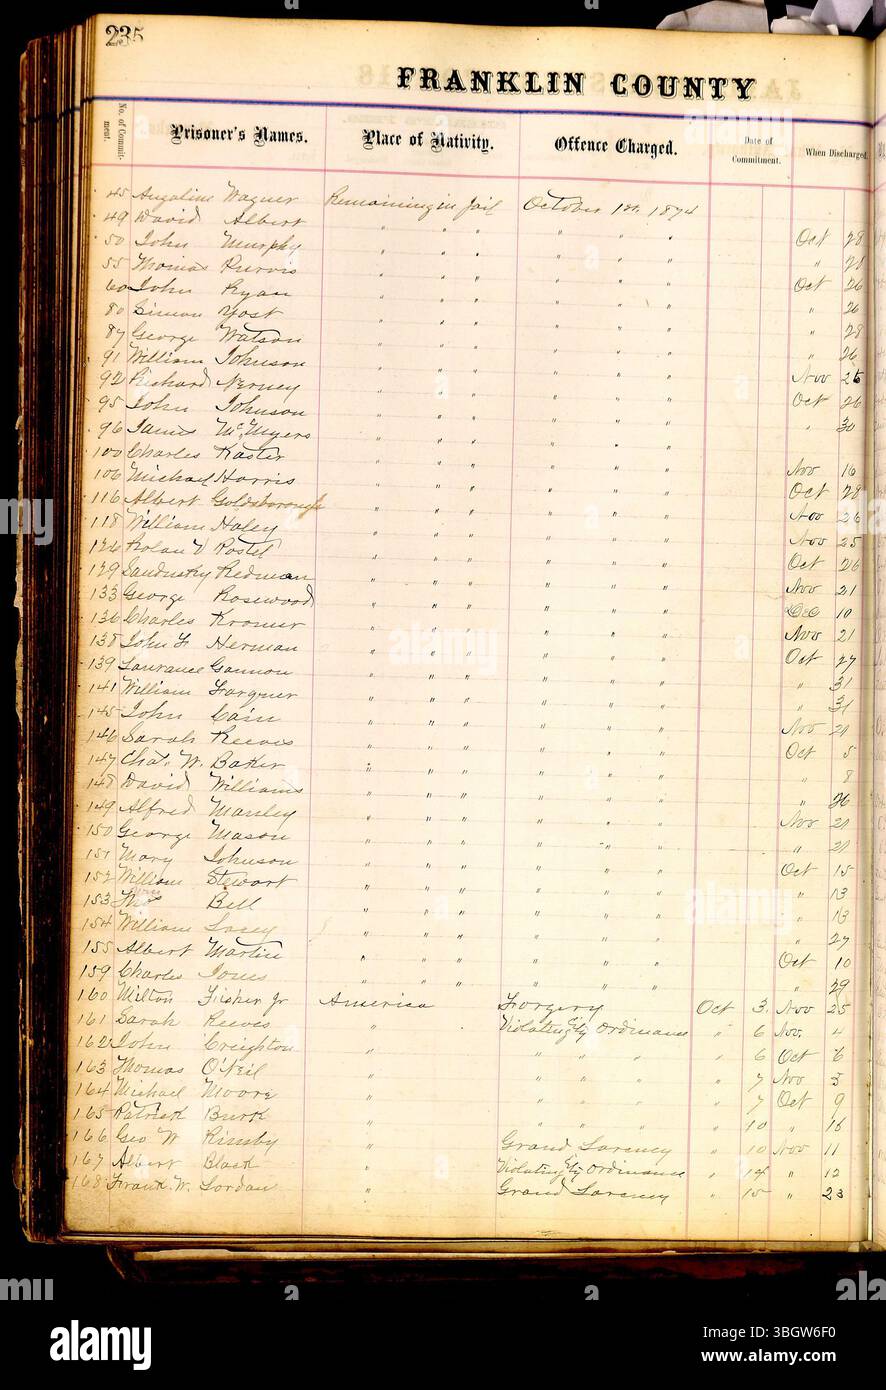 235
FRANKLIN COUNTY
No. of Commitment. Prisoner's Names. Place of Nativity. Offence Charged. Date of Commitment. When Discharged.
45 Angaline Wagner Remaining in Jail October 1st, 1874
49 David Albert " " " " " " Oct 28
50 John Murphy " " " " " " " 28
55 Thomas Purvis " " " " " " Oct 26
60 John Ryan " " " " " " " 26
80 Simon Yost " " " " " " " 28
87 George Watson " " " " " " " 26
91 William Johnson " " " " " " Nov 25
92 Richard Nerney " " " " " " Oct 26
95 John Johnson " " " " " " " 30
96 James McMyers " " " " " "
100 Charles Kaster " " " " " " Nov 16
106 Michael Harris " " " " " " Oct 28
116 Albert Goldsborough " " " " " " Nov 26
118 William Haley " " " " " " Nov 25
124 Rolan Postel " " " " " " Oct 26
129 Sandusky Redman " " " " " " Nov 21
133 George Rosewood " " " " " " Dec 10
136 Charles Kramer " " " " " " Nov 21
138 John F. Herman " " " " " " Oct 27
139 Laurance Gannon " " " " " " " 31
141 William Fargner " " " " " " " 31
145 John Cain " " " " " " Nov 21
146 Sarah Reeves " " " " " " Oct 5
147 Chas. W. Baker " " " " " " " 8
148 David Williams " " " " " " " 26
149 Alfred Manley " " " " " " Nov 21
150 George Mason " " " " " " " 21
151 Mary Johnson " " " " " " Oct 15
152 William Stewart " " " " " " " 13
153 Bell " " " " " " " 13
154 William Lacey " " " " " " " 27
155 Albert Martin " " " " " " Oct 10
159 Charles Jones " " " " " " " 29
160 Milton Fisher Jr America Forgery Oct 3 Nov 25
161 Sarah Reeves " Violating City Ordinance " 6 Nov. 4
162 John Creighton " " " " " 6 Oct 6
163 Thomas O'Neil " " " " " 7 Nov 3
164 Michael Moore " " " " " 7 Oct 9
165 Patrick Burk " " " " " 10 " 16
166 Geo W Rimby " Grand Larceny " 10 Nov 11
167 Albert Black " Violating City Ordinance " 14 " 12
168 Frank. W. Jordan " Grand Larceny " 15 " 23
alamy
Image ID: 3BGW6F0
www.alamy.com